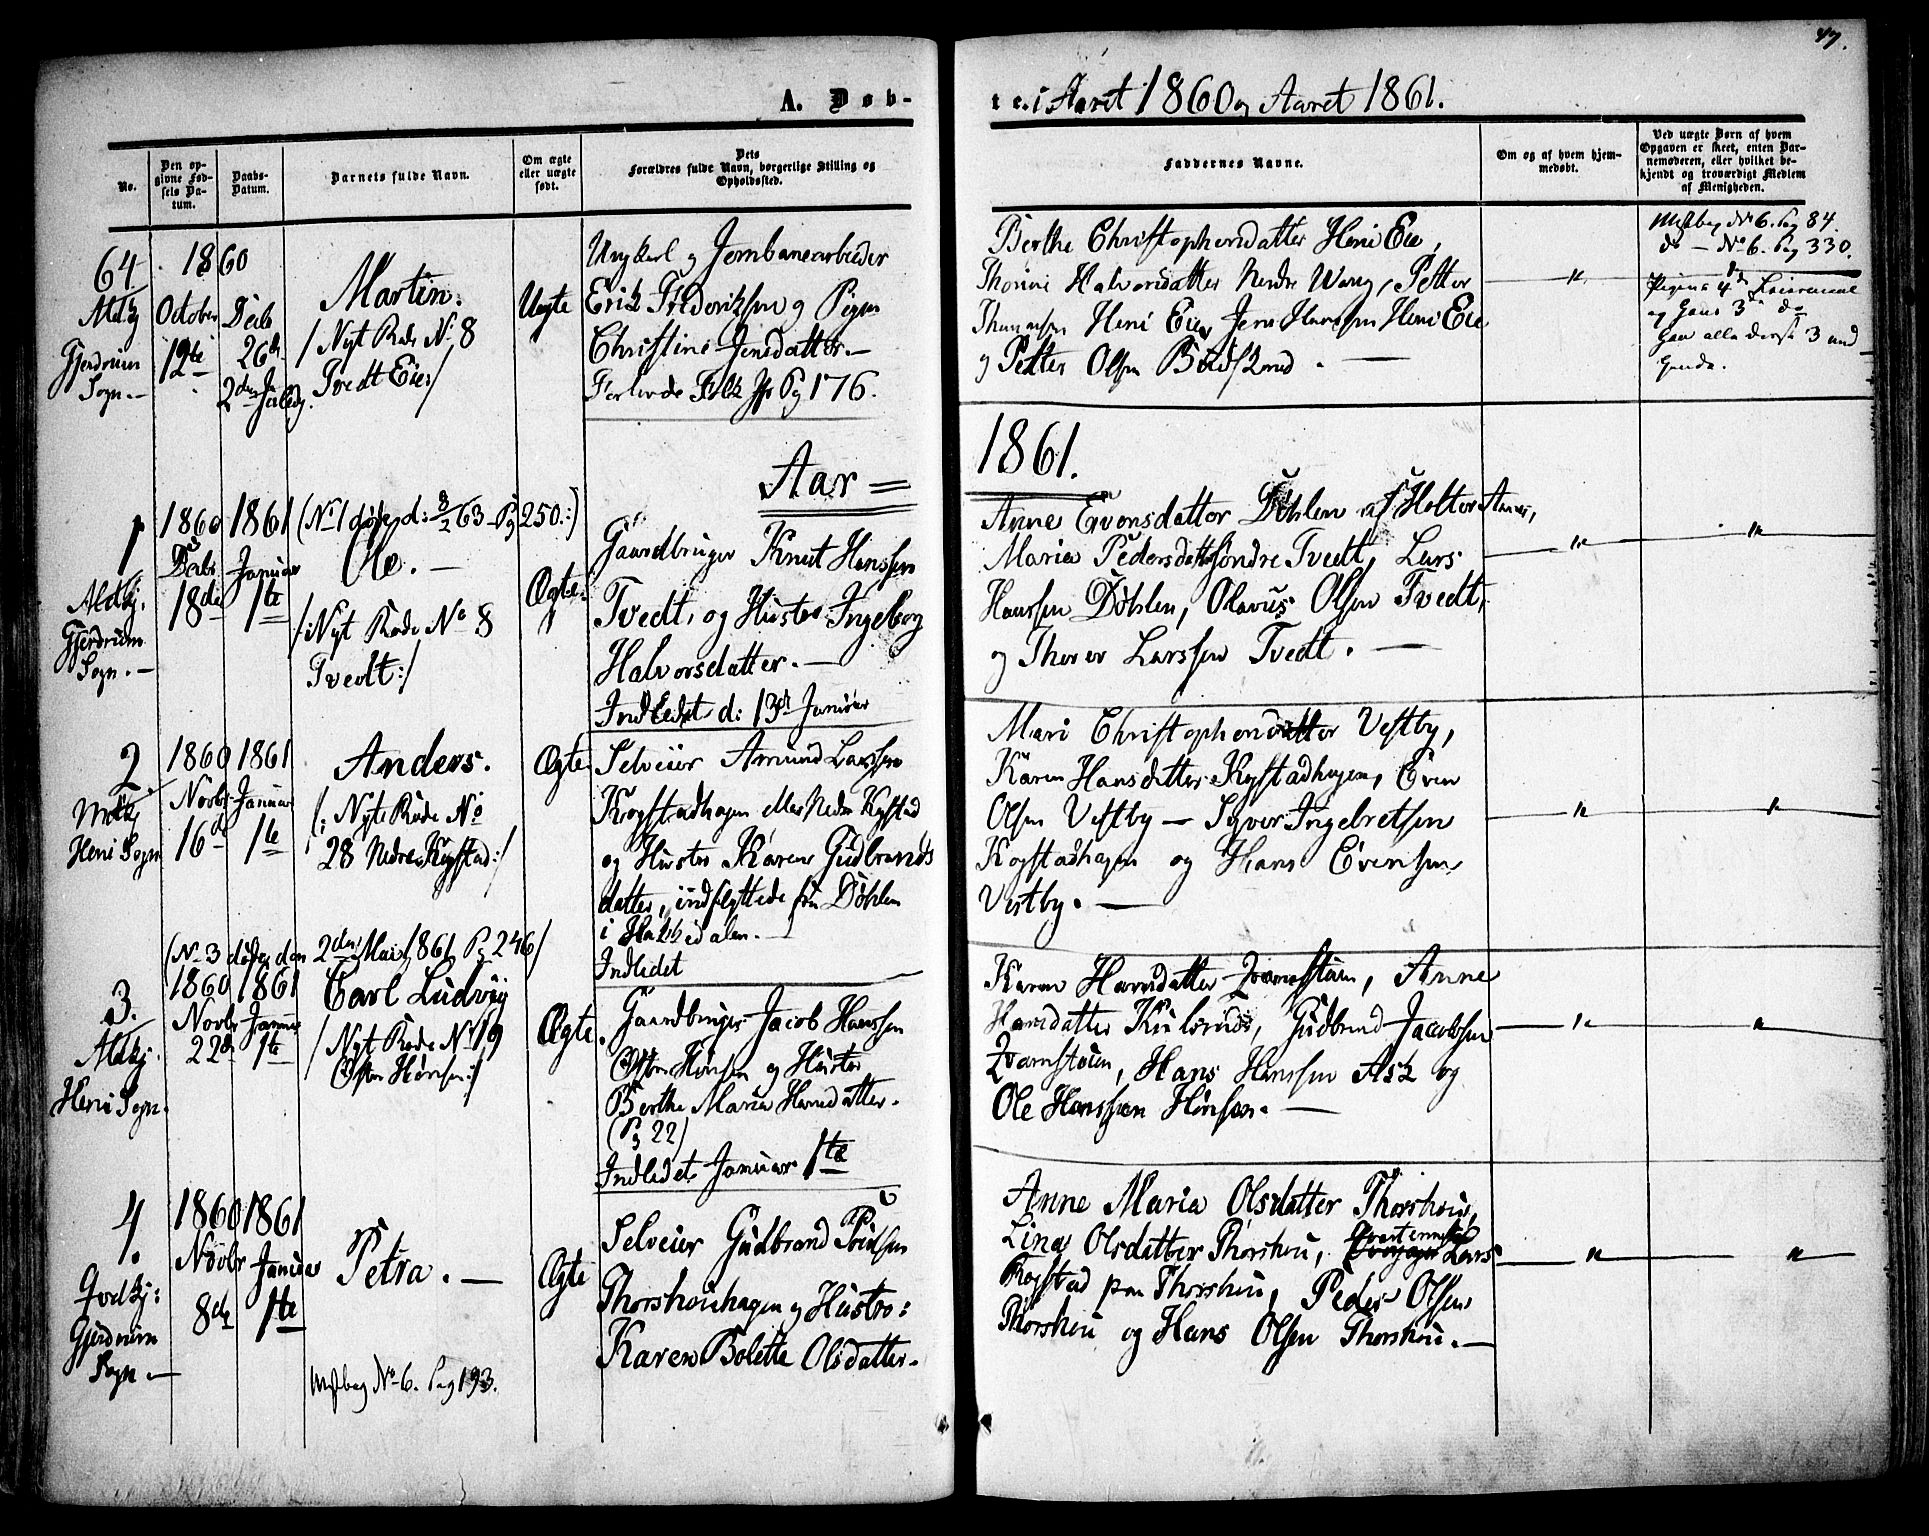 47.
A. Døb-
te. i Aaret 1860 og Aaret 1861.
No.
Den op-
givne Fød-
sels Da-
tum.
Daabs-
Datum.
Barnets fulde Navn.
Om ægte
eller uægte
født.
Dets
Forældres fulde Navn, borgerlige Stilling og
Opholdssted.
Faddernes Navne.
Om og af hvem hjem-
medøbt.
Ved uægte Børn af hvem
Opgaven er skeet, enten Bar-
nemoderen, eller hvilket be-
kjendt og troværdigt Medlem
af Menigheden.
64.
Gjerdrum
Sogn.
1860
October
12te
Decbr
26de
2den Juledg.
Martin.
/ Nyt Rode No 8
Tvedt Eie:/
Uægte
Ungkarl og Jernbanearbeider
Erik Frederiksen og Pigen
Christine Jensdatter.—
Pg 176.
Berthe Christophersdatter Heni Eie,
Halvorsdatter Nedre Wang, Petter
Heni Eie, Jens Hansen Heni Eie
og Petter Olsen
"
No 6. Pag 84.
do — No 6. Pag 330.
Pigens 4de
og Hans 3de do
Aar
1861.
1
Gjerdrum
Sogn.—
1860
Decbr
18de
1861
Januar
1te
(No 1 døde d: 3/2 63 — Pg 250.:)
Ole. —
/:Nyt Rode No 8
Tvedt:/
Ægte.
Gaardbruger Knut Hanssen
Tvedt, og Hustro Ingeborg
Halvorsdatter. —
Indledet d: 13de Januar
Anne Evensdatter Döhlen af Holter Annex,
Maria Pedersdatter Søndre Tvedt, Lars
Hanssen Döhlen, Olavus Olsen Tvedt,
og Thorer Larssen Tvedt. —
"
"
2.
Heni Sogn
1860
Novbr
16de
1861
Januar
1te
Anders.
/: Nyt Rode No
28 Nedre Kogstad:/
Ægte
Selveier Amund Larssen
Kogstadhagen eller Nedre Kogstad
og Hustro Karen Gudbrands
datter, indflyttede fra Döhlen
i Hakkedalen.—
Indledet —
Mari Christophersdatter Vestby,
Karen Hansdatter Kogstadhagen, Even
Olsen Vestby — Syver Ingebretsen
Kogstadhagen og Hans Evensen
Vestby. —
"
"
(No 3 døde den 2den Mai 1861 Pg 246/
3.
Heni Sogn.
1860
Novbr
22de
1861
Januar
1te
Carl Ludvig
/ Nyt Rode No 19
Østre Hønsen:/
Ægte.
Gaardbruger Jacob Hanssen
Østre Hønsen og Hustro
Berthe Maria Hansdatter.
(Pg 22)
Indledet Januar 1te
Karen Hansdatter Qvarnstuen, Anne
Hansdatter Kulsrud, Gudbrand Jacobsen
Qvarnstuen, Hans Hanssen Ask og
Ole Hanssen Hønsen. —
"
"
4.
Gjerdrum
Sogn.—
1860
Novbr
8de
1861
Januar
1te
Petra. —
No 6. Pag 193.
Ægte
Selveier Gudbrand Poulsen
Thorshoughagen og Hustro:
Karen Bolette Olsdatter.
Anne Maria Olsdatter Thorshoug,
Lina Olsdatter Thorshoug, Lars
Kogstad paa Thorshoug, Peder Olsen
Thorshoug og Hans Olsen Thorshoug.—
"
"